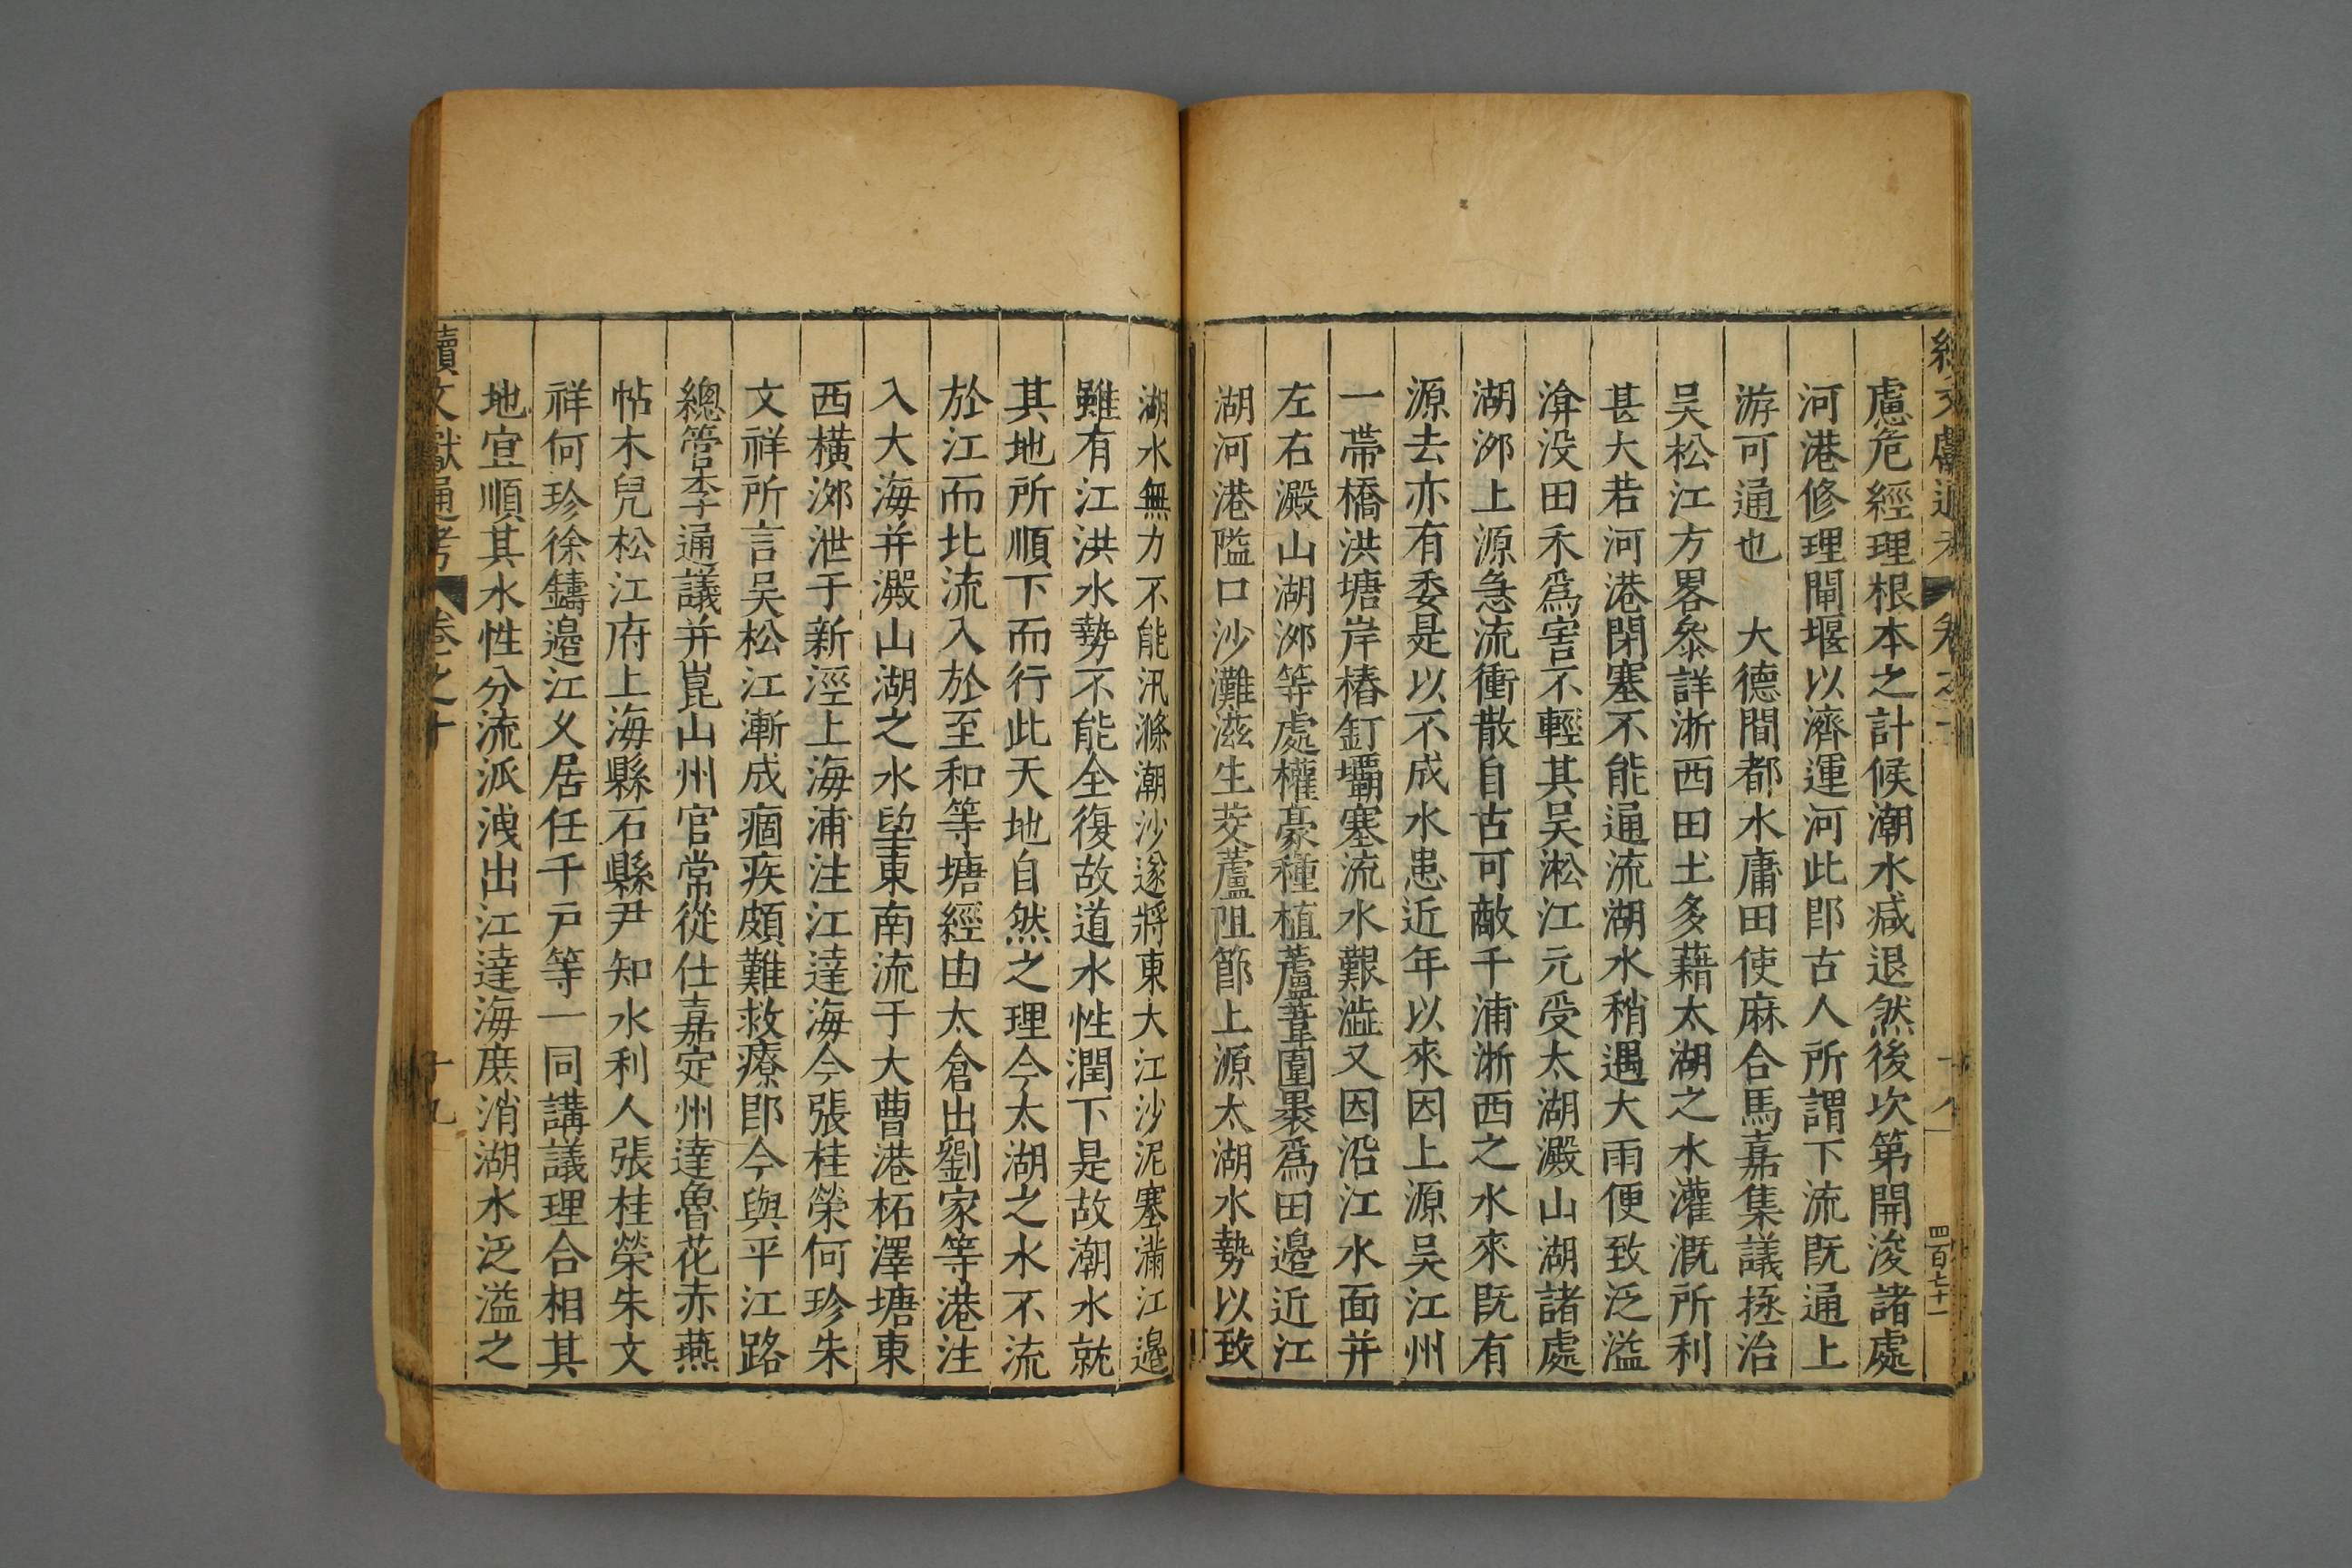 慮危經理根本之計候潮水減退然後次第開浚諸處
河港修理閘堰以濟運河此即古人所謂下流既通上
游可通也　大德間都水庸田使麻合馬嘉集議拯治
吴松江方畧叅詳浙西田土多藉太湖之水灌溉所利
甚大若河港閉塞不能通流湖水稍遇大雨便致泛溢
渰没田禾爲害不輕其吴淞江元受太湖澱山湖諸處
湖泖上源急流衝散自古可敵千浦浙西之水來既有
源去亦有委是以不成水患近年以來因上源吴江州
一帶橋洪塘岸樁釘壩塞流水艱澁又因沿江水面并
左右澱山湖泖等處權豪種植蘆葦圍裹爲田邉近江
湖河港隘口沙灘滋生茭蘆阻節上源太湖水勢以致
湖水無力不能汛滌潮沙遂將東大江沙泥塞滿江邉
雖有江洪水勢不能全復故道水性潤下是故潮水就
其地所順下而行此天地自然之理今太湖之水不流
於江而北流入於至和等塘經由太倉出劉家等港注
入大海并澱山湖之水望東南流于大曹港柘澤塘東
西橫泖泄于新涇上海浦注江達海今張桂榮何珍朱
文祥所言吴松江漸成痼疾頗難救療即今與平江路
總管李通議并崑山州官常從仕嘉定州達魯花赤燕
帖木兒松江府上海縣石縣尹知水利人張桂榮朱文
祥何珍徐鑄邉江乂居任千户等一同講議理合相其
地宜順其水性分流派洩出江達海庶消湖水泛溢之
續文獻通考　卷之十　十九
四百七十一